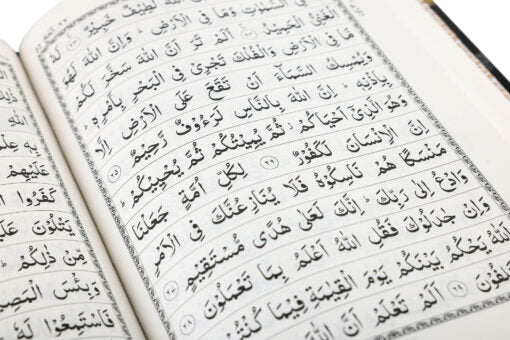 لَطِيْفٌ خَبِيْرٌ
السَّمٰوٰتِ وَمَا فِى الْاَرْضِ ؕ وَاِنَّ اللّٰهَ لَهُوَ
الْغَنِىُّ الْحَمِيْدُ اَلَمْ تَرَ اَنَّ اللّٰهَ سَخَّرَ لَكُمْ
مَّا فِى الْاَرْضِ وَالْفُلْكَ تَجْرِىْ فِى الْبَحْرِ بِاَمْرِهٖ ؕ
وَيُمْسِكُ السَّمَآءَ اَنْ تَقَعَ عَلَى الْاَرْضِ اِلَّا
بِاِذْنِهٖ ؕ اِنَّ اللّٰهَ بِالنَّاسِ لَرَءُوْفٌ رَّحِيْمٌ ﴿۶۵﴾
وَهُوَ الَّذِىْۤ اَحْيَاكُمْ ثُمَّ يُمِيْتُكُمْ ثُمَّ يُحْيِيْكُمْ ؕ
اِنَّ الْاِنْسَانَ لَكَفُوْرٌ ﴿۶۶﴾ لِكُلِّ اُمَّةٍ جَعَلْنَا
مَنْسَكًا هُمْ نَاسِكُوْهُ فَلَا يُنَازِعُنَّكَ فِى الْاَمْرِ
وَادْعُ اِلٰى رَبِّكَ ؕ اِنَّكَ لَعَلٰى هُدًى مُّسْتَقِيْمٍ ﴿۶۷﴾
وَاِنْ جٰدَلُوْكَ فَقُلِ اللّٰهُ اَعْلَمُ بِمَا تَعْمَلُوْنَ ﴿۶۸﴾
اَللّٰهُ يَحْكُمُ بَيْنَكُمْ يَوْمَ الْقِيٰمَةِ فِيْمَا كُنْتُمْ
تَخْتَلِفُوْنَ ﴿۶۹﴾ اَلَمْ تَعْلَمْ اَنَّ اللّٰهَ
بِهٖ
عَلَيْهِمْ
كَفَرُوا
يَتْلُوْنَ
مِّنْ ذٰلِكُمْ ؕ
وَبِئْسَ الْمَصِيْرُ
فَاسْتَمِعُوْا لَهٗ